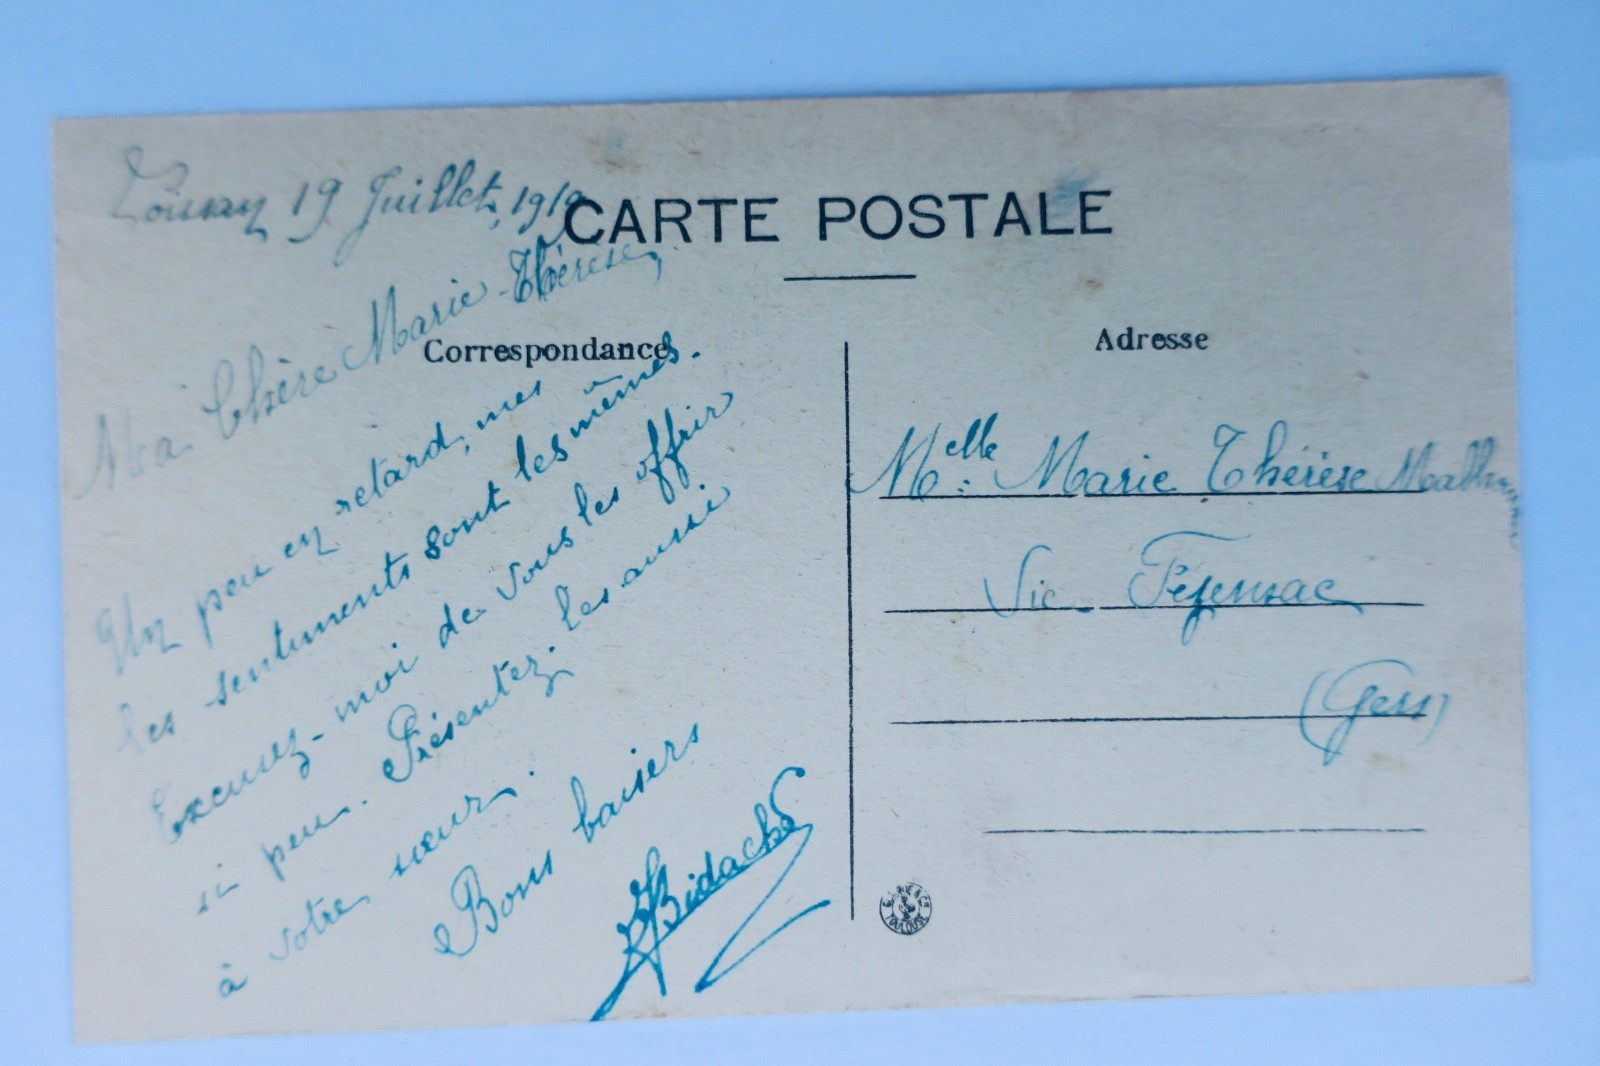 19 Juillet, 1919
CARTE POSTALE
Ma Chère Marie-Thérèse,
Correspondance
Adresse
Un peu en retard, mes
les sentiments sont les mêmes.
Excusez-moi de vous les offrir
si peu. Présentez-les aussi
à votre sœur.
Bons baisers
Bidache
Melle: Marie Thérèse
Vic Fezensac
(Gers)